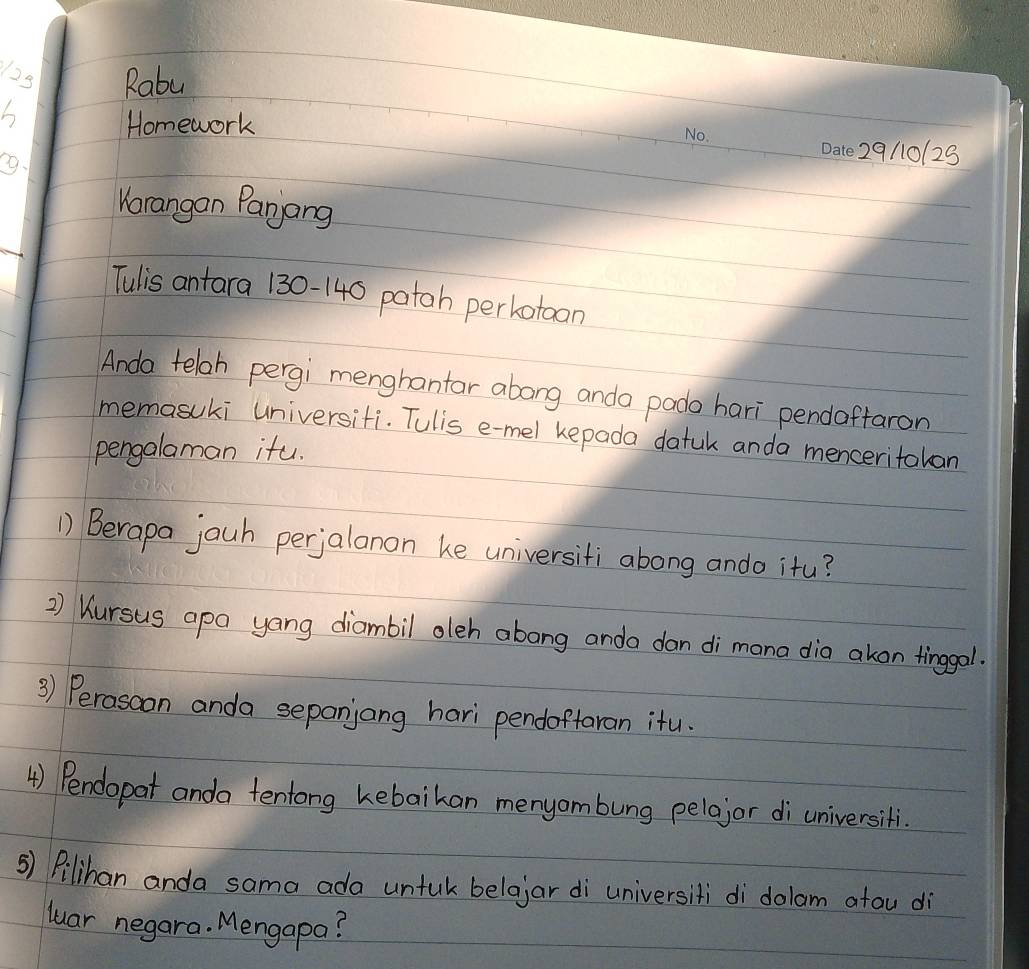 Rabu
Homework
No.
Date 29/10/25
Karangan Panjang
Tulis antara 130-140 patah perkataan
Anda telah pergi menghantar abang anda pada hari pendaftaran
memasuki universiti. Tulis e-mel kepada datuk anda menceritakan
pengalaman itu.
1) Berapa jauh perjalanan ke universiti abang anda itu?
2) Kursus apa yang diambil oleh abang anda dan di mana dia akan tinggal.
3) Perasaan anda sepanjang hari pendaftaran itu.
4) Pendapat anda tentang kebaikan menyambung pelajar di universiti.
5) Pilihan anda sama ada untuk belajar di universiti di dalam atau di
luar negara. Mengapa?